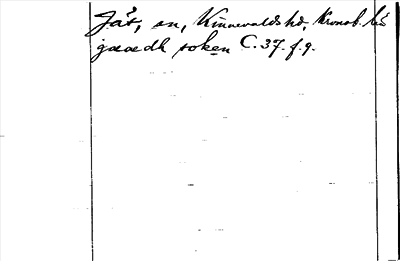 Jät, sn, Kinnevalds hd, Kronob. lä
gaæedh soken C. 37. f. 9.